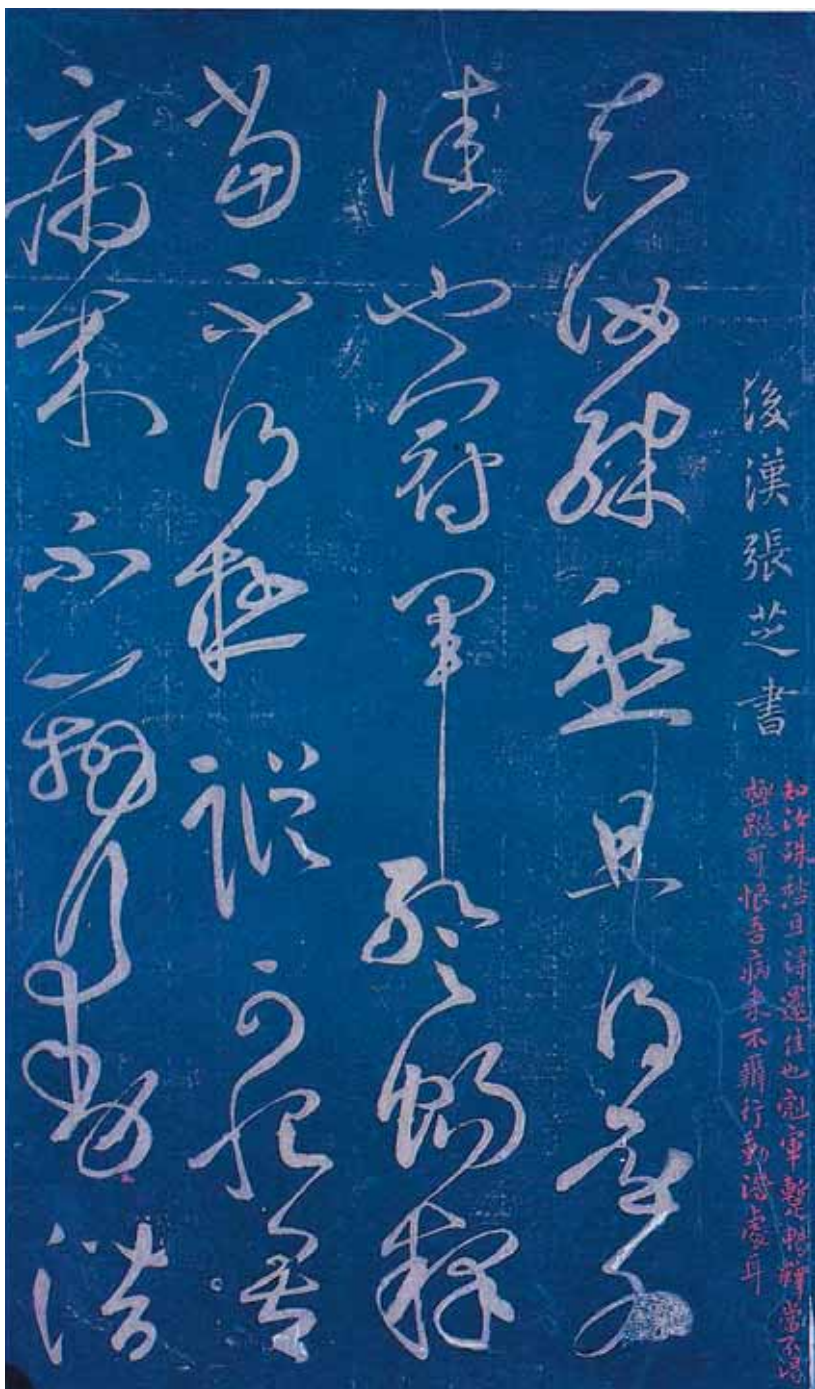 後漢張芝書
知汝殊愁且得還佳也冠軍暫暢釋當不得
極蹤可恨吾病來不辦行動潛處耳
知汝殊愁且得還為
佳也冠軍暫暢釋
當不得極蹤可恨吾
病來不辦行動潛